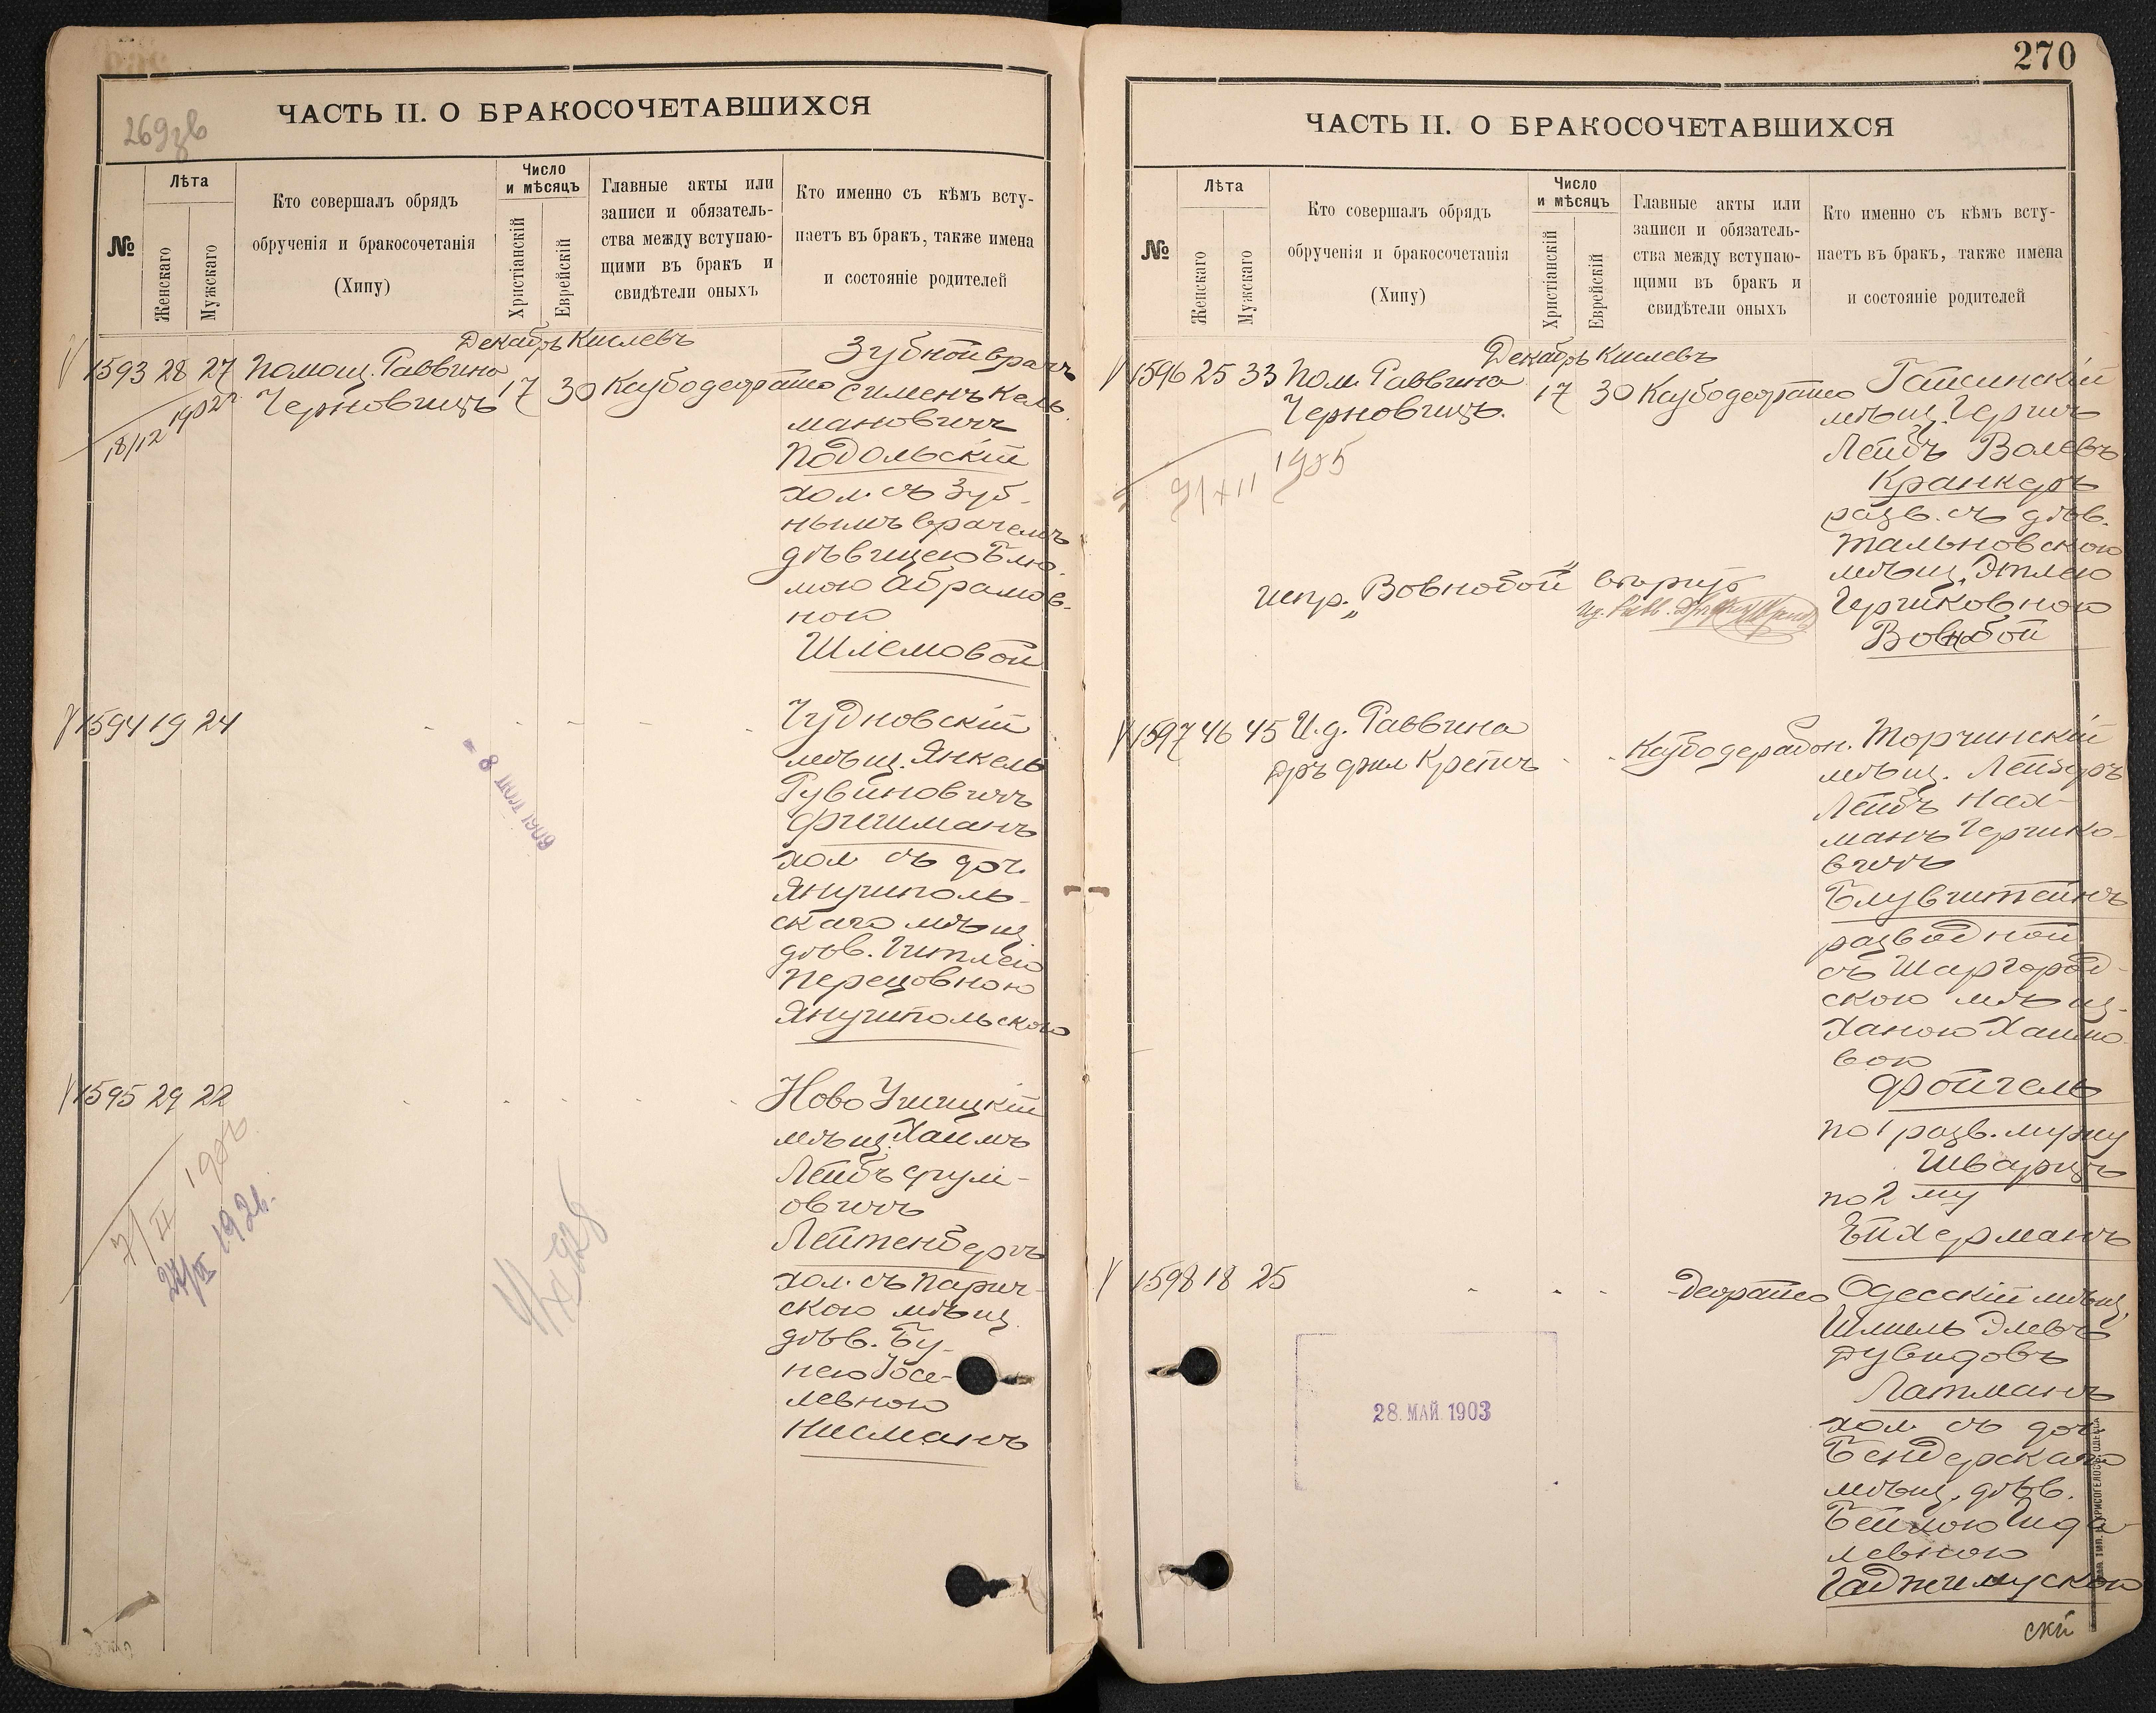 269 зв
ЧАСТЬ II. О БРАКОСОЧЕТАВШИХСЯ
№
Лѣта
Женскаго
Мужскаго
Кто совершалъ обрядъ
обрученія и бракосочетанія
(Хипу)
Число
и мѣсяцъ
Христіанскій
Еврейскій
Главные акты или
записи и обязатель-
ства между вступаю-
щими въ бракъ и
свидѣтели оныхъ
Кто именно съ кѣмъ всту-
паетъ въ бракъ, также имена
и состояніе родителей
Декабрь Кислевъ
1593 28 27 Помощ. Раввина
Черновицъ 17 30
18/12 1902 г.
Зубной врачъ
Сименъ Кель-
мановичъ
Подольскій
хол. съ зуб-
нымъ врачемъ
дѣвицею Блю-
мою Абрамов-
ною
Шлемовой
1594 19 24
Чудновскій
мѣщ. Янкель
Рувиновичъ
Фишманъ
хол съ доч.
Янушполь-
скаго мѣщ.
дѣв. Гитлею
Перецовною
Янушпольскою
- 8 1909
1595 29 22
Ново Ушицкій
мѣщ. Хаимъ
Лейбъ Срули-
овичъ
Лейтенбергъ
хол. съ Парич-
скою мѣщ.
дѣв. Бу-
нею Іосе-
левною
Нисманъ
ЧАСТЬ II. О БРАКОСОЧЕТАВШИХСЯ
270
№
Лѣта
Женскаго
Мужскаго
Кто совершалъ обрядъ
обрученія и бракосочетанія
(Хипу)
Число
и мѣсяцъ
Христіанскій
Еврейскій
Главные акты или
записи и обязатель-
ства между вступаю-
щими въ бракъ и
свидѣтели оныхъ
Кто именно съ кѣмъ всту-
паетъ въ бракъ, также имена
и состояніе родителей
Декабрь Кислевъ
1596 25 33 Пом. Раввина
Черновицъ. 17 30
1905
мѣщ. Гершъ
Лейбъ Волевъ
Кранкеръ
разв. съ дѣв.
Тальновскою
мѣщ. Этлею
Гершковною
Вовнобой
испр. „Вовнобой“ вѣрно
1597 46 45 И.д. Раввина
Торчинскій
мѣщ. Лейзеръ
Лейбъ Нах-
манъ Гершко-
вичъ
Блувштейнъ
разводной
съ Шаргород-
скою мѣщ.
Ханою Хаимо-
вою
Фойгель
по 1 разв. мужу
Шварцъ
по 2 му
Ейхерманъ
1598 18 25
Одесскій мѣщ.
Шмиль Элевъ
Дувидовъ
Латманъ
хол. съ доч.
Бендерскаго
мѣщ. дѣв.
Бейлою Ида-
левною
28. МАЙ. 1903